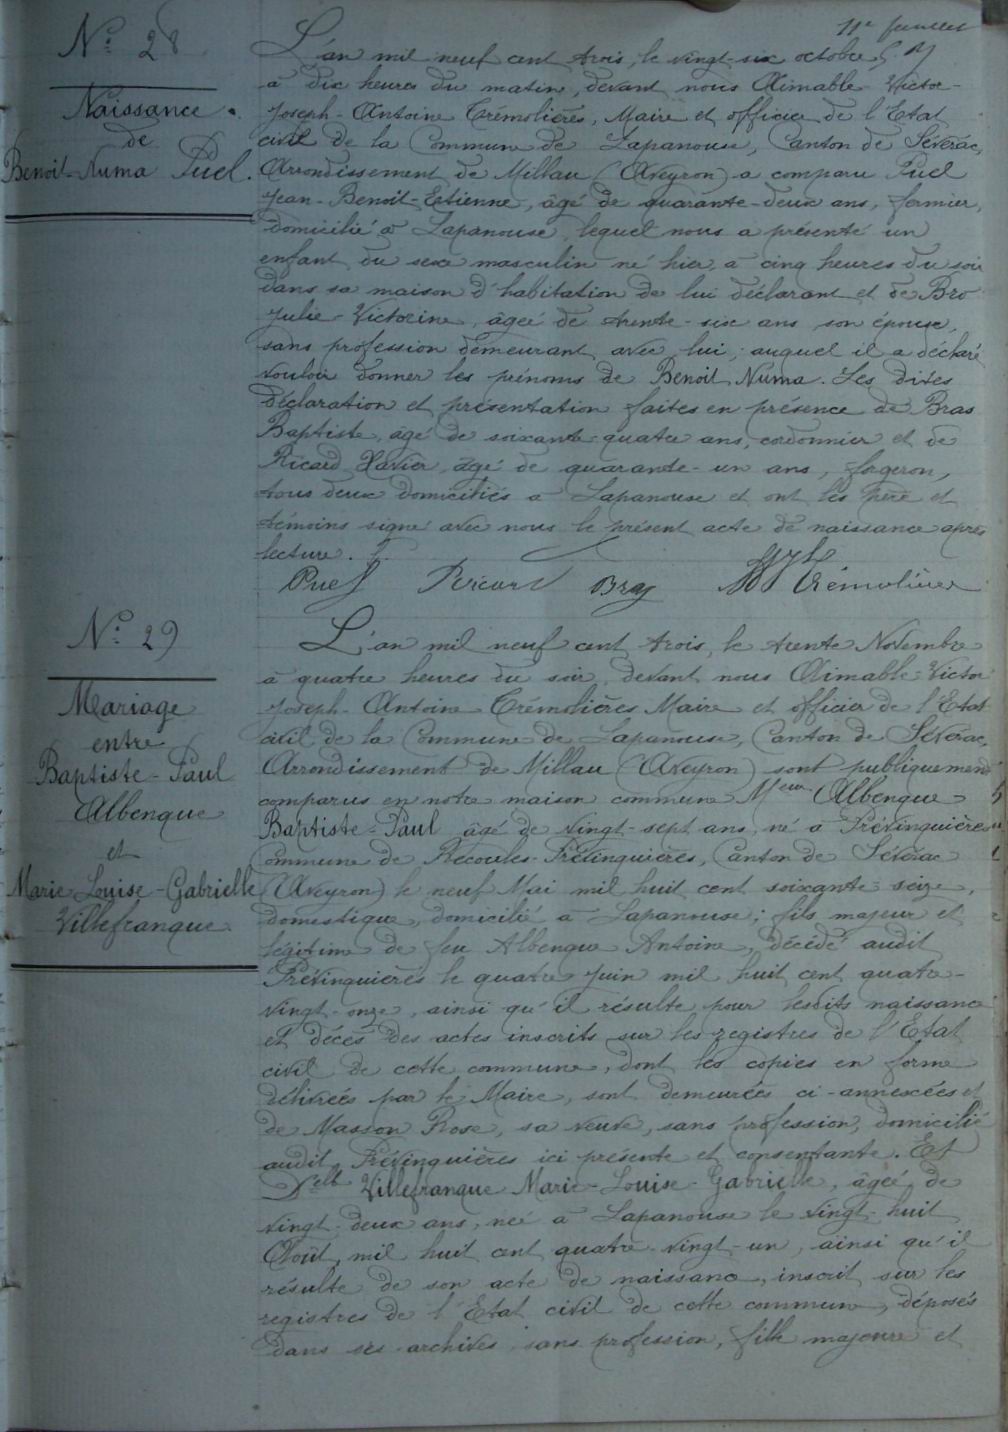 11e feuillet
N° 28
Naissance
de
Benoit-Numa Puel.
L'an mil neuf cent trois, le vingt-six octobre,
à dix heures du matin, devant nous Aimable-Victor-
Joseph-Antoine Trémolières, Maire et officier de l'Etat
civil de la Commune de Lapanouse, Canton de Sévérac,
Arrondissement de Millau (Aveyron) a comparu Puel
Jean-Benoit-Etienne, âgé de quarante-deux ans, fermier,
domicilié à Lapanouse, lequel nous a présenté un
enfant du sexe masculin né hier, à cinq heures du soir
dans sa maison d'habitation de lui déclarant et de Bro
Julie-Victorine, âgée de trente-six ans son épouse,
sans profession demeurant avec lui; auquel il a déclaré
vouloir donner les prénoms de Benoit Numa. Les dites
déclaration et présentation faites en présence de Bras
Baptiste, âgé de soixante-quatre ans, cordonnier et de
Ricard Xavier, âgé de quarante-un ans, forgeron,
tous deux domiciliés à Lapanouse et ont les père et
témoins signé avec nous le présent acte de naissance après
lecture.
Puel Ricard Bras Trémolières
N° 29
Mariage
entre
Baptiste-Paul
Albenque
et
Marie-Louise-Gabrielle
Villefranque
L'an mil neuf cent trois, le trente Novembre
à quatre heures du soir, devant nous Aimable-Victor
Joseph-Antoine Trémolières Maire et officier de l'Etat
civil de la Commune de Lapanouse, Canton de Sévérac,
Arrondissement de Millau (Aveyron) sont publiquement
comparus en notre maison commune Meur Albenque
Baptiste-Paul âgé de vingt-sept ans, né à Prévinquières
Commune de Recoules-Prévinquières, Canton de Sévérac
(Aveyron) le neuf Mai mil huit cent soixante-seize,
domestique, domicilié à Lapanouse; fils majeur et
légitime de feu Albenque Antoine, décédé audit
Prévinquières le quatre Juin mil huit cent quatre-
vingt-onze, ainsi qu'il résulte pour lesdits naissance
et décès des actes inscrits sur les registres de l'Etat
civil de cette commune, dont les copies en forme
délivrées par le Maire, sont demeurées ci-annexées et
de Masson Rose, sa veuve, sans profession, domicilié
audit Prévinquières ici présente et consentante. Et
Delle Villefranque Marie-Louise-Gabrielle, âgée de
vingt-deux ans, née à Lapanouse le vingt-huit
Août, mil huit cent quatre-vingt-un, ainsi qu'il
résulte de son acte de naissance, inscrit sur les
registres de l'Etat civil de cette commune, déposés
dans ses archives sans profession, fille majeure et